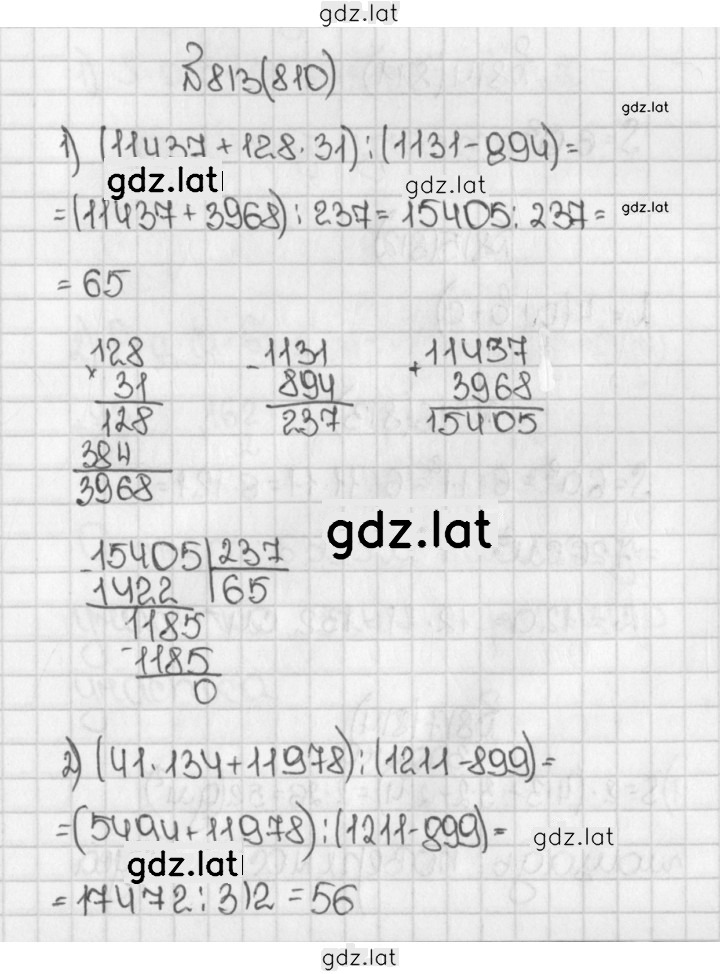 gdz.lat
№813(810)
gdz.lat
1) (11437+128·31):(1131-894)=
gdz.lat
gdz.lat
=(11437+3968):237=15405:237=
gdz.lat
=65
128
× 31
128
384
3968
-1131
894
237
+11437
3968
15405
gdz.lat
-15405|237
1422 65
-1185
1185
0
2) (41·134+11978):(1211-899)=
=(5494+11978):(1211-899)=
gdz.lat
gdz.lat
=17472:312=56
gdz.lat